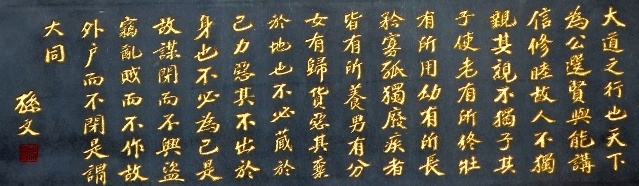 大道之行也天下
為公選賢與能講
信修睦故人不獨
親其親不獨子其
子使老有所終壯
有所用幼有所長
矜寡孤獨廢疾者
皆有所養男有分
女有歸貨惡其棄
於地也不必藏於
己力惡其不出於
身也不必為己是
故謀閉而不興盜
竊亂賊而不作故
外戶而不閉是謂
大同
孫文